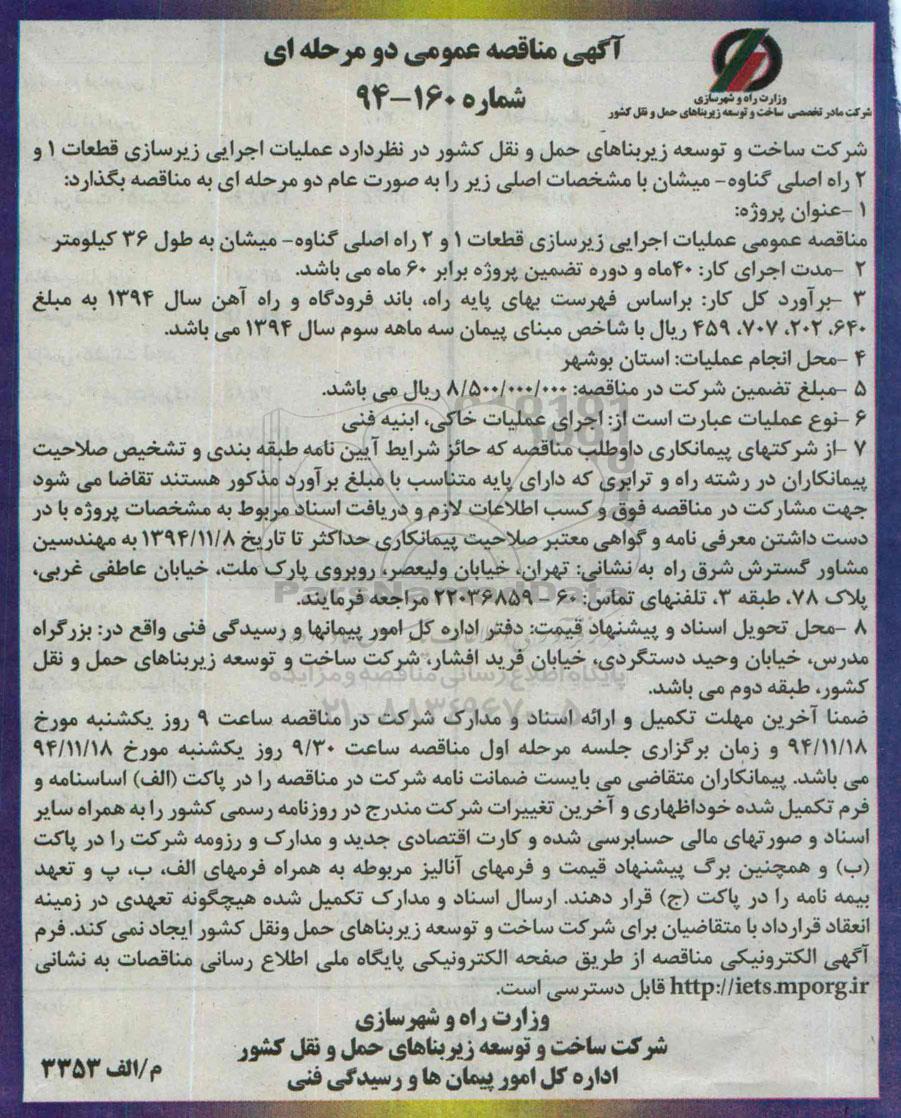 آگهی مناقصه عمومی دو مرحله ای
شماره ۱۶۰-۹۴
وزارت راه و شهرسازی
شرکت مادر تخصصی ساخت و توسعه زیربناهای حمل و نقل کشور
شرکت ساخت و توسعه زیربناهای حمل و نقل کشور در نظردارد عملیات اجرایی زیرسازی قطعات ۱ و
۲ راه اصلی گناوه- میشان با مشخصات اصلی زیر را به صورت عام دو مرحله ای به مناقصه بگذارد:
۱ -عنوان پروژه:
مناقصه عمومی عملیات اجرایی زیرسازی قطعات ۱ و ۲ راه اصلی گناوه- میشان به طول ۳۶ کیلومتر
۲ -مدت اجرای کار: ۴۰ماه و دوره تضمین پروژه برابر ۶۰ ماه می باشد.
۳ -برآورد کل کار: براساس فهرست بهای پایه راه، باند فرودگاه و راه آهن سال ۱۳۹۴ به مبلغ
۶۴۰، ۲۰۲، ۷۰۷، ۴۵۹ ریال با شاخص مبنای پیمان سه ماهه سوم سال ۱۳۹۴ می باشد.
۴ -محل انجام عملیات: استان بوشهر
۵ -مبلغ تضمین شرکت در مناقصه: ۸/۵۰۰/۰۰۰/۰۰۰ ریال می باشد.
۶ -نوع عملیات عبارت است از: اجرای عملیات خاکی، ابنیه فنی
۷ -از شرکتهای پیمانکاری داوطلب مناقصه که حائز شرایط آیین نامه طبقه بندی و تشخیص صلاحیت
پیمانکاران در رشته راه و ترابری که دارای پایه متناسب با مبلغ برآورد مذکور هستند تقاضا می شود
جهت مشارکت در مناقصه فوق و کسب اطلاعات لازم و دریافت اسناد مربوط به مشخصات پروژه با در
دست داشتن معرفی نامه و گواهی معتبر صلاحیت پیمانکاری حداکثر تا تاریخ ۱۳۹۴/۱۱/۸ به مهندسین
مشاور گسترش شرق راه به نشانی: تهران، خیابان ولیعصر، روبروی پارک ملت، خیابان عاطفی غربی،
پلاک ۷۸، طبقه ۳، تلفنهای تماس: ۶۰ - ۲۲۰۳۶۸۵۹ مراجعه فرمایند.
۸ -محل تحویل اسناد و پیشنهاد قیمت: دفتر اداره کل امور پیمانها و رسیدگی فنی واقع در: بزرگراه
مدرس، خیابان وحید دستگردی، خیابان فرید افشار، شرکت ساخت و توسعه زیربناهای حمل و نقل
کشور، طبقه دوم می باشد.
ضمنا آخرین مهلت تکمیل و ارائه اسناد و مدارک شرکت در مناقصه ساعت ۹ روز یکشنبه مورخ
۹۴/۱۱/۱۸ و زمان برگزاری جلسه مرحله اول مناقصه ساعت ۹/۳۰ روز یکشنبه مورخ ۹۴/۱۱/۱۸
می باشد. پیمانکاران متقاضی می بایست ضمانت نامه شرکت در مناقصه را در پاکت (الف) اساسنامه و
فرم تکمیل شده خوداظهاری و آخرین تغییرات شرکت مندرج در روزنامه رسمی کشور را به همراه سایر
اسناد و صورتهای مالی حسابرسی شده و کارت اقتصادی جدید و مدارک و رزومه شرکت را در پاکت
(ب) و همچنین برگ پیشنهاد قیمت و فرمهای آنالیز مربوطه به همراه فرمهای الف، ب، پ و تعهد
بیمه نامه را در پاکت (ج) قرار دهند. ارسال اسناد و مدارک تکمیل شده هیچگونه تعهدی در زمینه
انعقاد قرارداد با متقاضیان برای شرکت ساخت و توسعه زیربناهای حمل ونقل کشور ایجاد نمی کند. فرم
آگهی الکترونیکی مناقصه از طریق صفحه الکترونیکی پایگاه ملی اطلاع رسانی مناقصات به نشانی
http://iets.mporg.ir قابل دسترسی است.
وزارت راه و شهرسازی
شرکت ساخت و توسعه زیربناهای حمل و نقل کشور
اداره کل امور پیمان ها و رسیدگی فنی
م/الف ۳۳۵۳